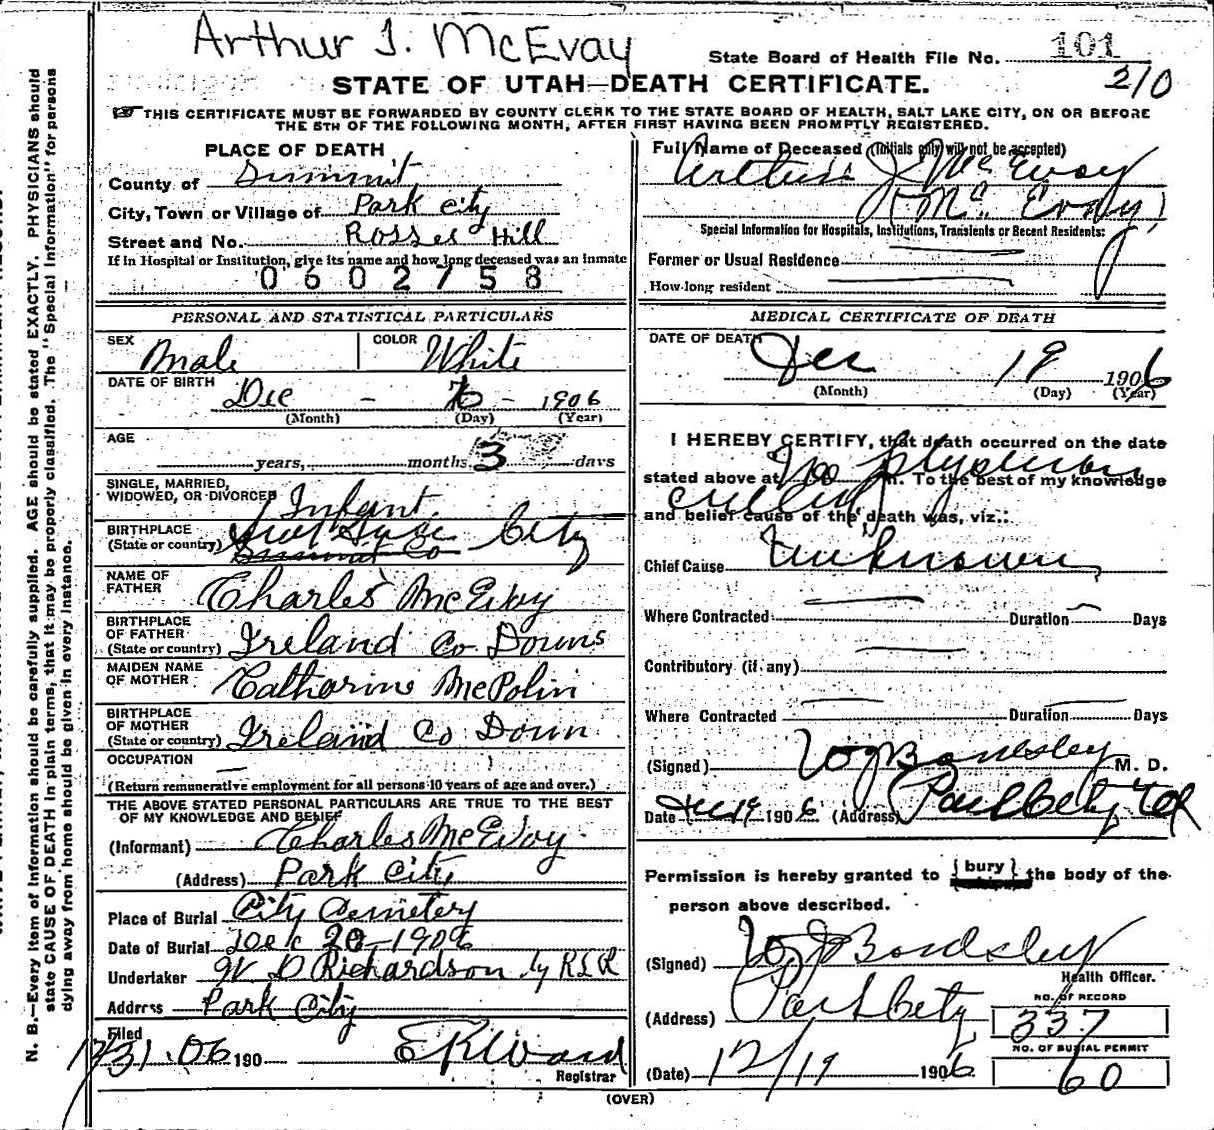 Arthur J. McEvay
State Board of Health File No. 101
210
STATE OF UTAH—DEATH CERTIFICATE.
THIS CERTIFICATE MUST BE FORWARDED BY COUNTY CLERK TO THE STATE BOARD OF HEALTH, SALT LAKE CITY, ON OR BEFORE
THE 5TH OF THE FOLLOWING MONTH, AFTER FIRST HAVING BEEN PROMPTLY REGISTERED.
PLACE OF DEATH
County of Summit
City, Town or Village of Park City
Street and No. Rosses Hill
If in Hospital or Institution, give its name and how long deceased was an inmate
0602758
PERSONAL AND STATISTICAL PARTICULARS
SEX Male COLOR White
DATE OF BIRTH Dec - - 1906
(Month) (Day) (Year)
AGE
years, months 3 days
SINGLE, MARRIED,
WIDOWED, OR DIVORCED Infant
BIRTHPLACE
(State or country) City
Summit Co
NAME OF
FATHER Charles McEvoy
BIRTHPLACE
OF FATHER
(State or country) Ireland Co Downs
MAIDEN NAME
OF MOTHER Catharine McPolin
BIRTHPLACE
OF MOTHER
(State or country) Ireland Co Down
OCCUPATION —
(Return remunerative employment for all persons 10 years of age and over.)
THE ABOVE STATED PERSONAL PARTICULARS ARE TRUE TO THE BEST
OF MY KNOWLEDGE AND BELIEF
(Informant) Charles McEvoy
(Address) Park City
Place of Burial City Cemetery
Date of Burial Dec 20-1906
Undertaker W D Richardson by R.S.R
Address Park City
Filed
12/31.06 190 E K Ward
Registrar
Full Name of Deceased (Initials only will not be accepted)
J McEvoy
(McEvoy)
Special Information for Hospitals, Institutions, Transients or Recent Residents:
Former or Usual Residence
How long resident
MEDICAL CERTIFICATE OF DEATH
DATE OF DEATH Dec 19 1906
(Month) (Day) (Year)
I HEREBY CERTIFY, that death occurred on the date
stated above at M. To the best of my knowledge
No physician
called
and belief cause of the death was, viz.:
Chief Cause Unknown
Where Contracted Duration Days
Contributory (if any)
Where Contracted Duration Days
(Signed) W J Bardsley M. D.
Date Dec 19 1906 (Address) Park City Utah
Permission is hereby granted to {bury} the body of the
person above described.
(Signed) W J Bardsley
Health Officer.
(Address) Park City
NO. OF RECORD
337
NO. OF BURIAL PERMIT
60
(Date) 12/19 1906
(OVER)
N. B.—Every item of information should be carefully supplied. AGE should be stated EXACTLY. PHYSICIANS should
state CAUSE OF DEATH in plain terms, that it may be properly classified. The "Special Information" for persons
dying away from home should be given in every instance.